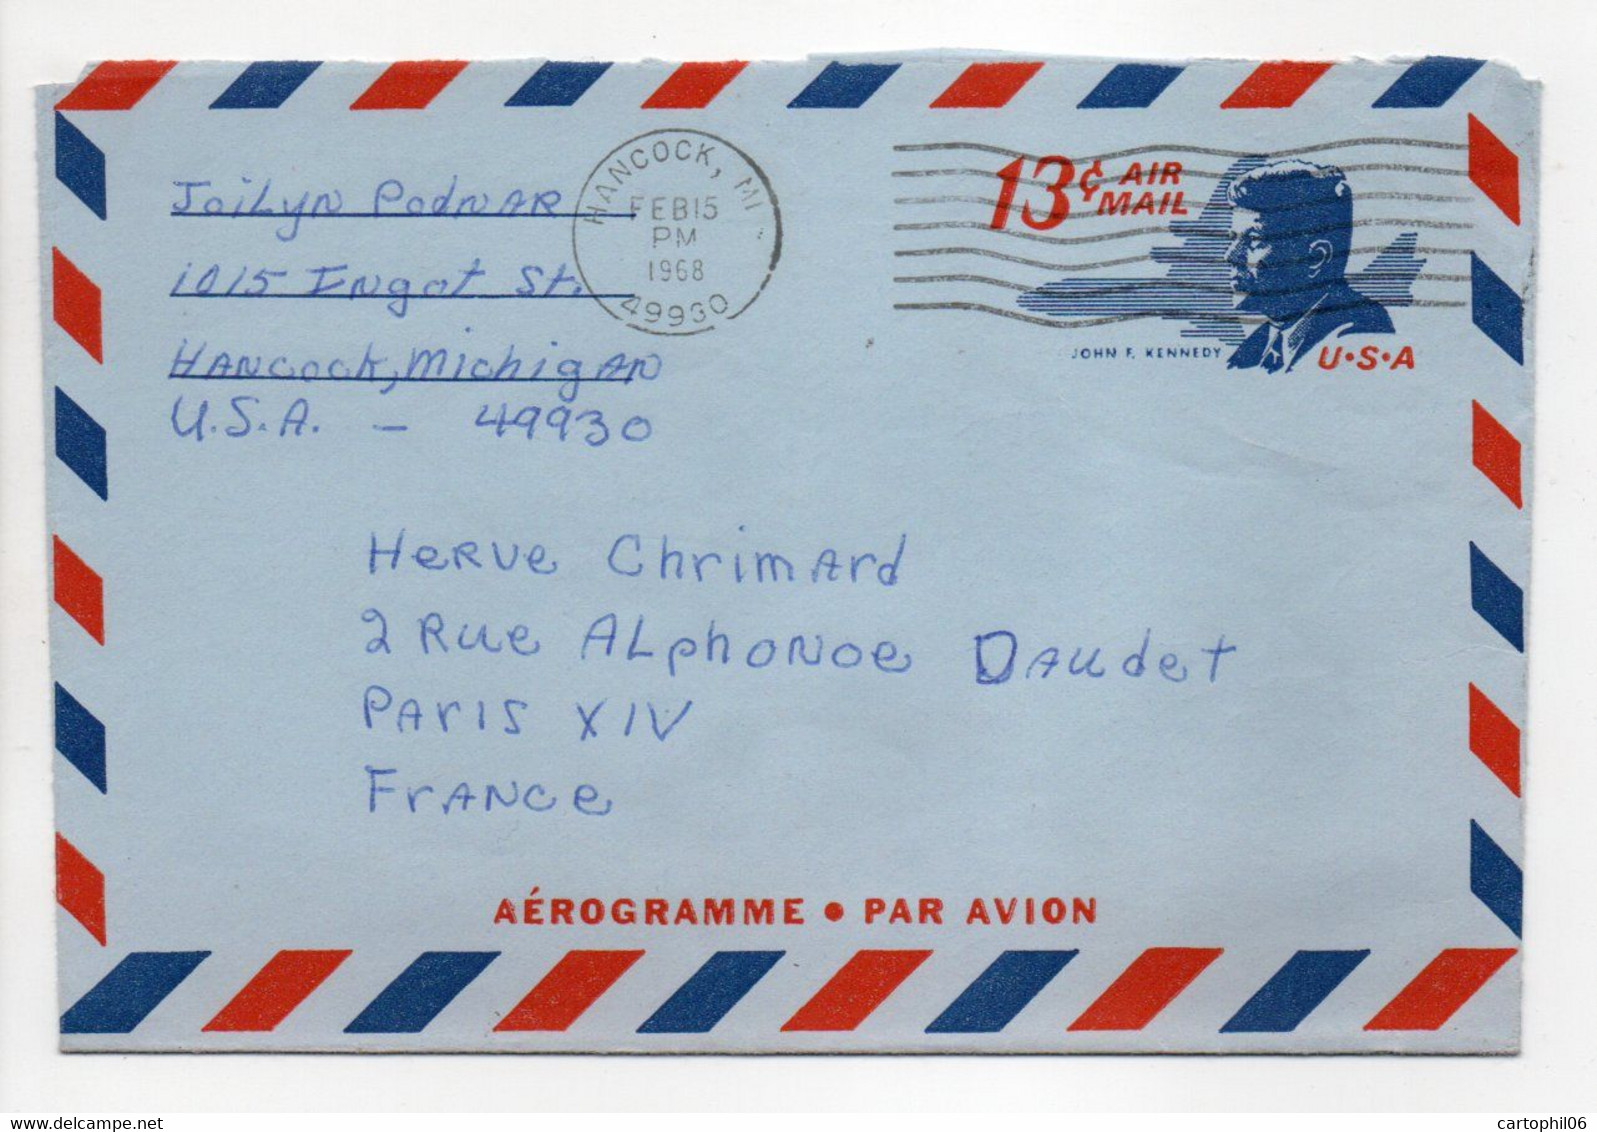 Joilyn Podnar
1015 Ingot St.
Hancock, Michigan
U.S.A. - 49930
HANCOCK, MI
FEB 15
PM
1968
49930
13¢ AIR MAIL
JOHN F. KENNEDY
U·S·A
Herve Chrimard
2 Rue Alphonoe Daudet
Paris XIV
France
AÉROGRAMME • PAR AVION
cartophil06